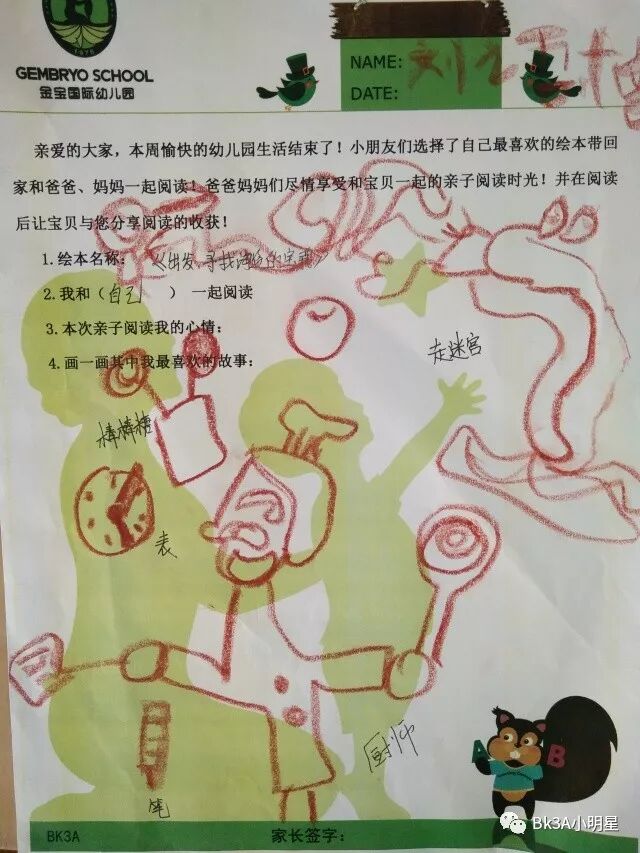 1978
GEMBRYO SCHOOL
金宝国际幼儿园
NAME: 刘
DATE:
亲爱的大家，本周愉快的幼儿园生活结束了！小朋友们选择了自己最喜欢的绘本带回
家和爸爸、妈妈一起阅读！爸爸妈妈们尽情享受和宝贝一起的亲子阅读时光！并在阅读
后让宝贝与您分享阅读的收获！
1.绘本名称：《出发 寻找 的宝藏》
2.我和（自己）一起阅读
3.本次亲子阅读我的心情：
4.画一画其中我最喜欢的故事：
走迷宫
棒棒糖
表
厨师
笔
A B
BK3A
家长签字：
BK3A小明星